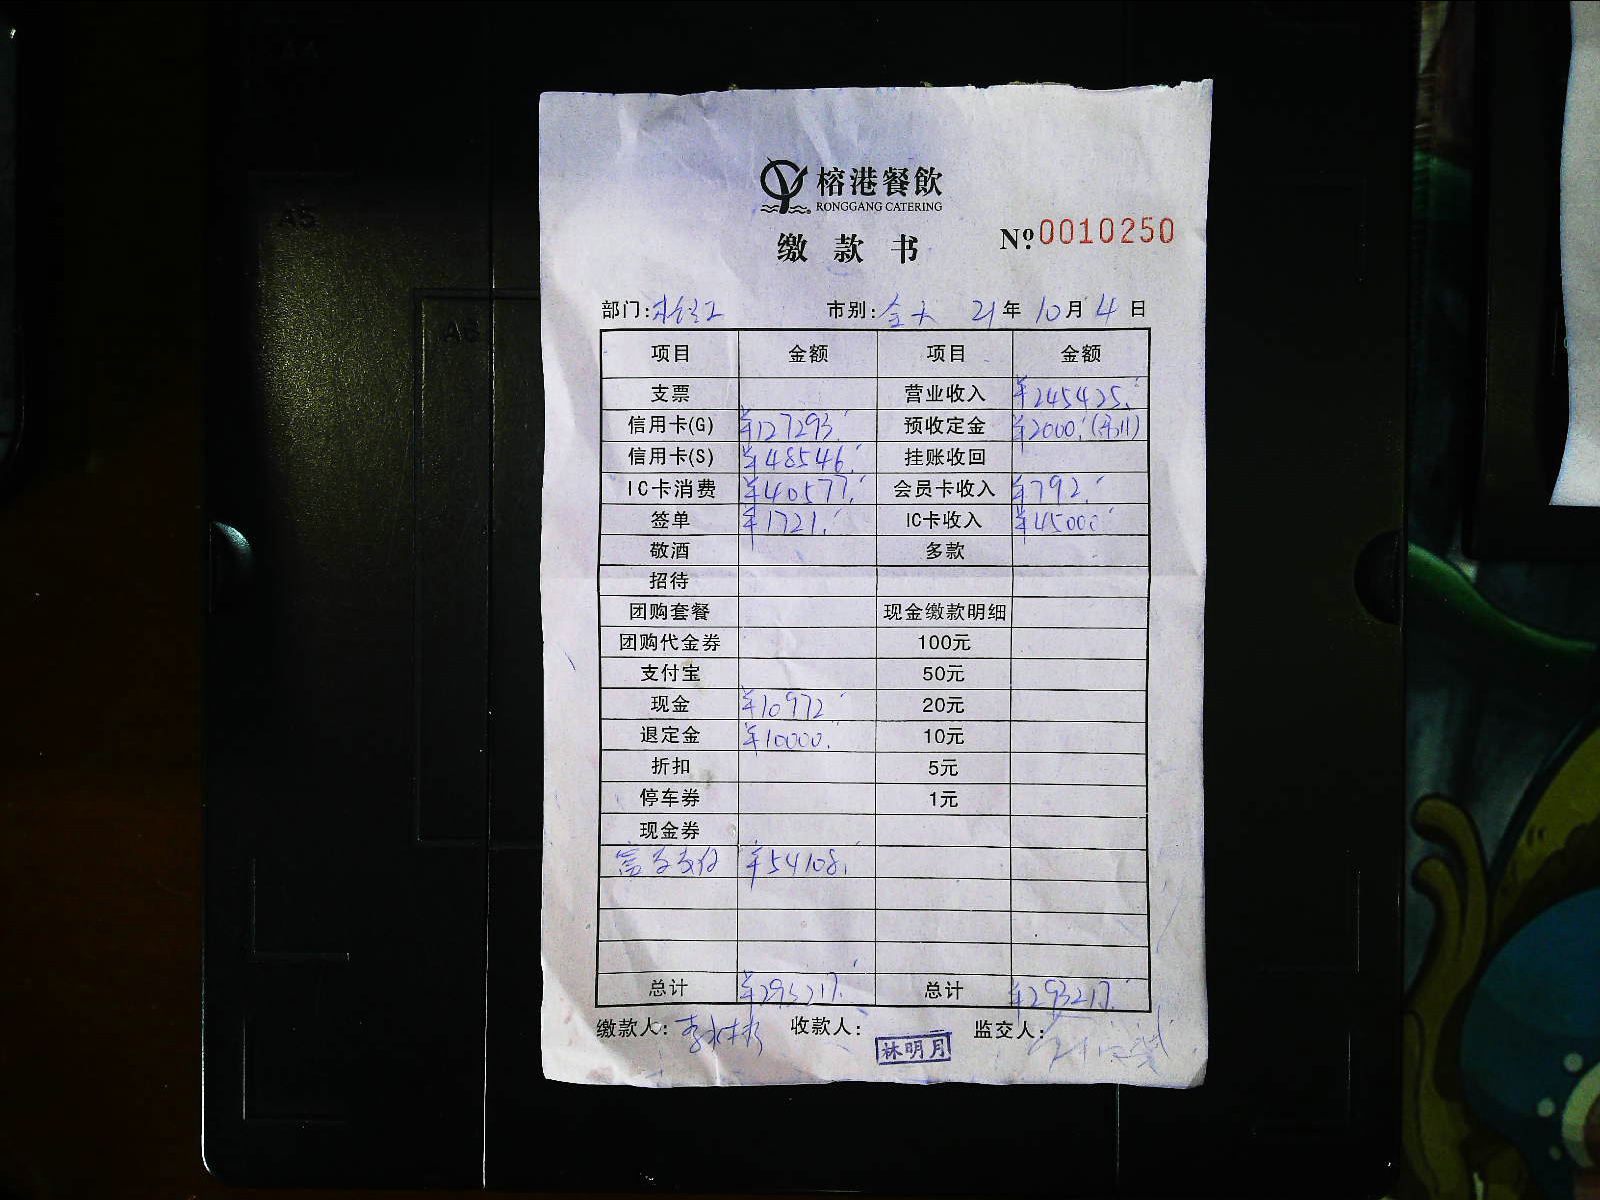 榕港餐飲
RONGGANG CATERING
缴款书 №0010250
部门: 市别:全天 21年10月4日
项目 金额 项目 金额
支票 营业收入 ¥245425.
信用卡(G) ¥127293. 预收定金 ¥2000.
信用卡(S) ¥48546. 挂账收回
IC卡消费 ¥40577. 会员卡收入 ¥792.
签单 ¥1721. IC卡收入 ¥45000
敬酒 多款
招待
团购套餐 现金缴款明细
团购代金券 100元
支付宝 50元
现金 ¥10972 20元
退定金 ¥10000. 10元
折扣 5元
停车券 1元
现金券
支付 ¥54108.
总计 ¥293217. 总计 ¥293217.
缴款人: 收款人: 林明月 监交人:
A4
A5
A6